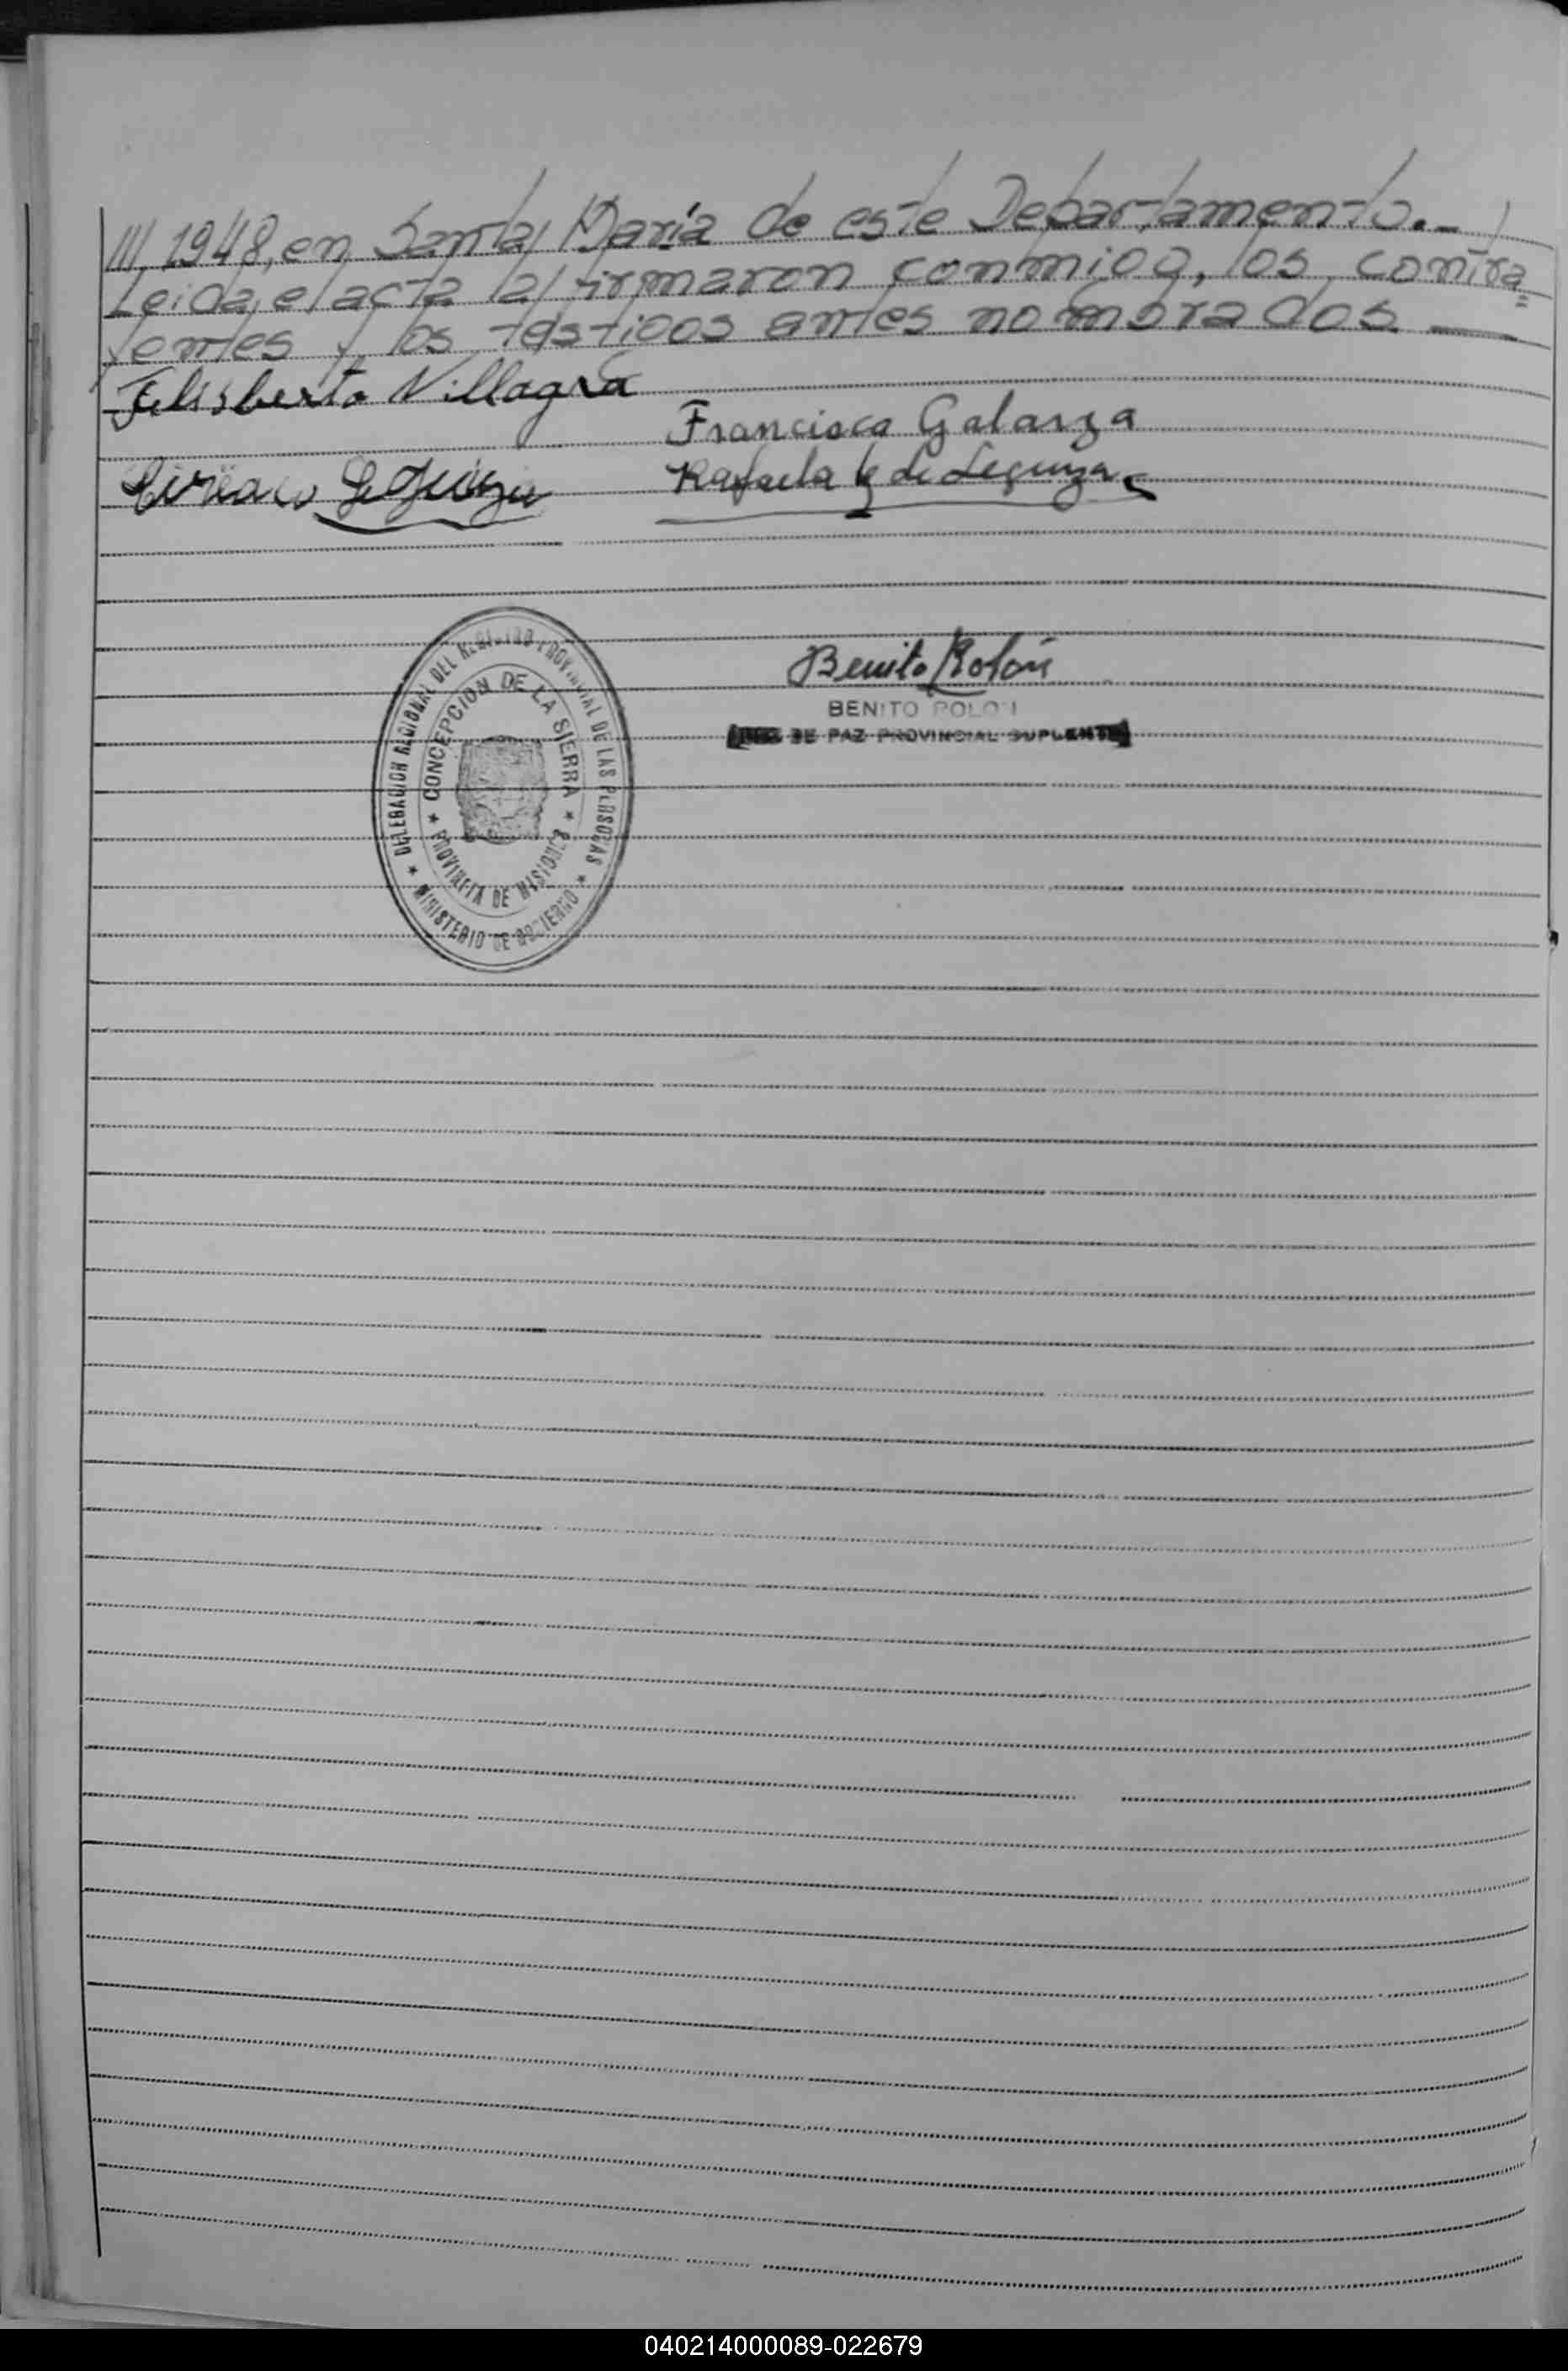 ///, 1948, en Santa María de este Departamento.-
Leida, el acta la firmaron conmigo, los contra=
yentes y los testigos antes nombrados —
Felisberto Villagra
Francisca Galarza
Ciriaco Leguiza
Rafaela G de Leguiza
DELEGACION REGIONAL DEL REGISTRO PROVINCIAL DE LAS PERSONAS
★ CONCEPCION DE LA SIERRA ★
PROVINCIA DE MISIONES
★ MINISTERIO DE GOBIERNO ★
Benito Rolón
BENITO ROLON
JUEZ DE PAZ PROVINCIAL SUPLENTE
040214000089-022679